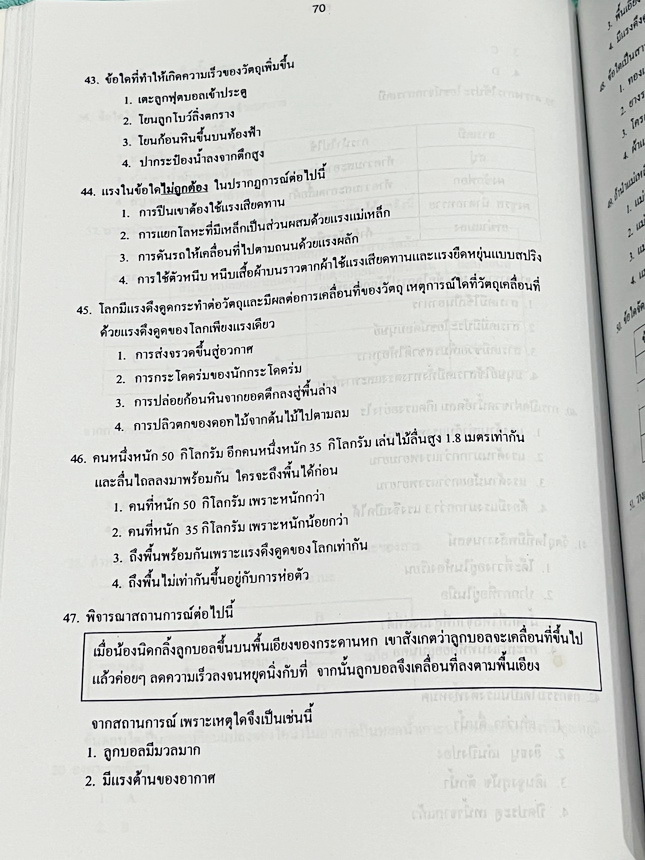 70
43. ข้อใดที่ทำให้เกิดความเร็วของวัตถุเพิ่มขึ้น
1. เตะลูกฟุตบอลเข้าประตู
2. โยนลูกโบว์ลิ่งตกราง
3. โยนก้อนหินขึ้นบนท้องฟ้า
4. ปากระป๋องน้ำลงจากตึกสูง
44. แรงในข้อใดไม่ถูกต้อง ในปรากฏการณ์ต่อไปนี้
1. การปีนเขาต้องใช้แรงเสียดทาน
2. การแยกโลหะที่มีเหล็กเป็นส่วนผสมด้วยแรงแม่เหล็ก
3. การดันรถให้เคลื่อนที่ไปตามถนนด้วยแรงผลัก
4. การใช้ตัวหนีบ หนีบเสื้อผ้าบนราวตากผ้าใช้แรงเสียดทานและแรงยืดหยุ่นแบบสปริง
45. โลกมีแรงดึงดูดกระทำต่อวัตถุและมีผลต่อการเคลื่อนที่ของวัตถุ เหตุการณ์ใดที่วัตถุเคลื่อนที่
ด้วยแรงดึงดูดของโลกเพียงแรงเดียว
1. การส่งจรวดขึ้นสู่อวกาศ
2. การกระโดดร่มของนักกระโดดร่ม
3. การปล่อยก้อนหินจากยอดตึกลงสู่พื้นล่าง
4. การปลิวตกของดอกไม้จากต้นไม้ไปตามลม
46. คนหนึ่งหนัก 50 กิโลกรัม อีกคนหนึ่งหนัก 35 กิโลกรัม เล่นไม้ลื่นสูง 1.8 เมตรเท่ากัน
และลื่นไถลลงมาพร้อมกัน ใครจะถึงพื้นได้ก่อน
1. คนที่หนัก 50 กิโลกรัม เพราะหนักกว่า
2. คนที่หนัก 35 กิโลกรัม เพราะหนักน้อยกว่า
3. ถึงพื้นพร้อมกันเพราะแรงดึงดูดของโลกเท่ากัน
4. ถึงพื้นไม่เท่ากันขึ้นอยู่กับการห่อตัว
47. พิจารณาสถานการณ์ต่อไปนี้
เมื่อน้องนิดกลิ้งลูกบอลขึ้นบนพื้นเอียงของกระดานหก เขาสังเกตว่าลูกบอลจะเคลื่อนที่ขึ้นไป
แล้วค่อยๆ ลดความเร็วลงจนหยุดนิ่งกับที่ จากนั้นลูกบอลจึงเคลื่อนที่ลงตามพื้นเอียง
จากสถานการณ์ เพราะเหตุใดจึงเป็นเช่นนี้
1. ลูกบอลมีมวลมาก
2. มีแรงต้านของอากาศ